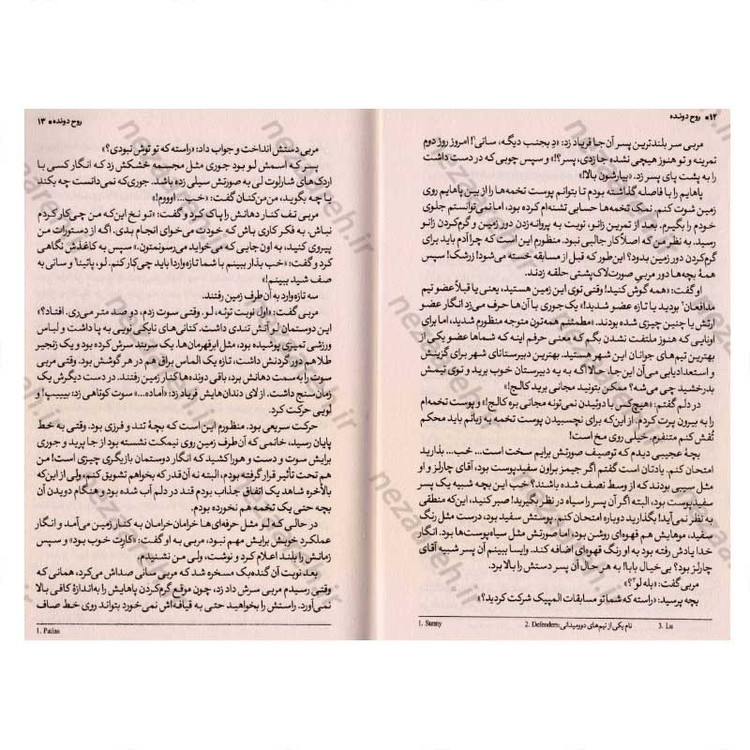 ۱۲ • روح دونده
مربی سر بلندترین پسر آن‌جا فریاد زد: «دِ بجنب دیگه، سانی'! امروز روز دوم
تمرینه و تو هنوز هیچی نشده جا زدی، پسر؟!» و سپس چوبی که در دست داشت
را به پشت پای پسر زد. «بیارشون بالا!»
پاهایم را با فاصله گذاشته بودم تا بتوانم پوست تخمه‌ها را از بین پاهایم روی
زمین شوت کنم. نمک تخمه‌ها حسابی تشنه‌ام کرده بود، اما نمی‌توانستم جلوی
خودم را بگیرم. بعد از تمرین زانو، نوبت به پروانه‌زدن دور زمین و گرم‌کردن زانو
رسید. به نظر من که اصلاً کار جالبی نبود. منظورم این است که چرا آدم باید برای
گرم‌کردن دور زمین بدود؟ این‌طور که قبل از مسابقه خسته می‌شود! زرشک! سپس
همهٔ بچه‌ها دور مربیِ صورت‌لاک‌پشتی حلقه زدند.
او گفت: «همه گوش کنید! وقتی توی این زمین هستید، یعنی یا قبلاً عضو تیم
مدافعان' بودید یا تازه عضو شدید!» یک‌جوری با آن‌ها حرف می‌زد انگار عضو
ارتش یا چنین چیزی شده بودند. «مطمئنم همه‌تون متوجه منظورم شدید، اما برای
اونایی که هنوز ملتفت نشدن بگم که معنی حرفم اینه که شماها عضو یکی از
بهترین تیم‌های جوانان این شهر هستید. بهترین دبیرستانای شهر برای گزینش
و استعدادیابی می‌آن این‌جا. حالا اگه به یه دبیرستان خوب برید و توی تیمش
بدرخشید چی می‌شه؟ ممکن بتونید مجانی برید کالج!»
در دلم گفتم: «هیچ‌کس با دوئیدن نمی‌تونه مجانی بره کالج!» و پوست تخمه‌ام
را به بیرون پرت کردم. از این‌که برای نچسبیدن پوست تخمه به زبانم باید محکم
تُفش کنم متنفرم. خیلی روی مخ است!
بچهٔ عجیبی دیدم که توصیف صورتش برایم سخت است... خب... بذارید
امتحان کنم. یادتان است گفتم اگر جیمز براون سفیدپوست بود، آقای چارلز و او
مثل سیبی بودند که از وسط نصف شده باشند؟ خب این بچه شبیه یک پسر
سفیدپوست بود، البته اگر آن پسر را سیاه در نظر بگیرید! صبر کنید، این‌که منطقی
به نظر نمی‌آید! بگذارید دوباره امتحان کنم. پوستش سفید بود، درست مثل رنگ
سفید، موهایش هم قهوه‌ای روشن بود، اما صورتش مثل سیاه‌پوست‌ها بود. انگار
خدا یادش رفته بود به او رنگ قهوه‌ای اضافه کند. وایسا ببینم آن پسر شبیه آقای
چارلز بود؟ بی‌خیال بابا! به هر حال آن پسر دستش را بالا برد.
مربی گفت: «بله لو'؟»
بچه پرسید: «راسته که شما تو مسابقات المپیک شرکت کردید؟»
1. Sunny 2. Defenders: نام یکی از تیم‌های دوومیدانی 3. Lu
روح دونده • ۱۳
مربی دستش انداخت و جواب داد: «راسته که تو توش نبودی؟»
پسر که اسمش لو بود جوری مثل مجسمه خشکش زد که انگار کسی با
اردک‌های شارلوت لی به صورتش سیلی زده باشد. جوری‌که نمی‌دانست چه بکند
یا چه بگوید، من‌من‌کنان گفت: «خب... اوووم!»
مربی تف کنار دهانش را پاک کرد و گفت: «تو نخ این‌که من چی‌کار کردم
نباش. به فکر کاری باش که خودت می‌خوای انجام بدی. اگه از دستورات من
پیروی کنید، به اون جایی که می‌خواید می‌رسونمتون.» سپس به کاغذش نگاهی
کرد و گفت: «خب بذار ببینم با شما تازه‌واردا باید چی‌کار کنم. لو، پاتینا' و سانی به
صف شید ببینم!»
سه تازه‌وارد به آن طرف زمین رفتند.
مربی گفت: «اول نوبت توئه، لو. وقتی سوت زدم، دو صد متر می‌ری. افتاد؟»
این دوستمان لو آتش تندی داشت. کتانی‌های نایکی نویی به پا داشت و لباس
ورزشی تمیزی پوشیده بود، مثل ابرقهرمان‌ها. یک سربند سرش کرده بود و یک زنجیر
طلا هم دور گردنش داشت، تازه یک الماس براق هم در هر گوشش بود. وقتی مربی
سوت را به سمت دهانش برد، باقی دونده‌ها کنار زمین رفتند. در دست دیگرش یک
زمان سنج داشت. از لای دندان‌هایش فریاد زد: «آماده...» سوت کوتاهی زد: بیییپ! و
لویی حرکت کرد.
حرکت سریعی بود. منظورم این است که بچهٔ تند و فرزی بود. وقتی به خط
پایان رسید، خانمی که آن‌طرف زمین روی نیمکت نشسته بود از جا پرید و جوری
برایش سوت و دست و هورا کشید که انگار دوستمان بازیگری چیزی است! من
هم تحت تأثیر قرار گرفته بودم، البته نه آن‌قدر که بخواهم تشویق کنم، ولی از این‌که
بالأخره شاهد یک اتفاق جذاب بودم قند در دلم آب شده بود و هنگام دویدن آن
بچه حتی یک تخمه هم نخورده بودم.
در حالی که لو مثل حرفه‌ای‌ها خرامان‌خرامان به کنار زمین می‌آمد و انگار
عملکرد خوبش برایش مهم نبود، مربی به او گفت: «کارت خوب بود» و سپس
زمانش را بلند اعلام کرد و نوشت، ولی من نشنیدم.
بعد نوبت آن گنده‌بک مسخره شد که مربی سانی صداش می‌کرد، همانی که
وقتی رسیدم مربی سرش داد زد، چون موقع گرم‌کردن پاهایش را به‌اندازهٔ کافی بالا
نمی‌آورد. راستش را بخواهید حتی به قیافه‌اش نمی‌خورد بتواند روی خط صاف
1. Patina
nezareh.ir